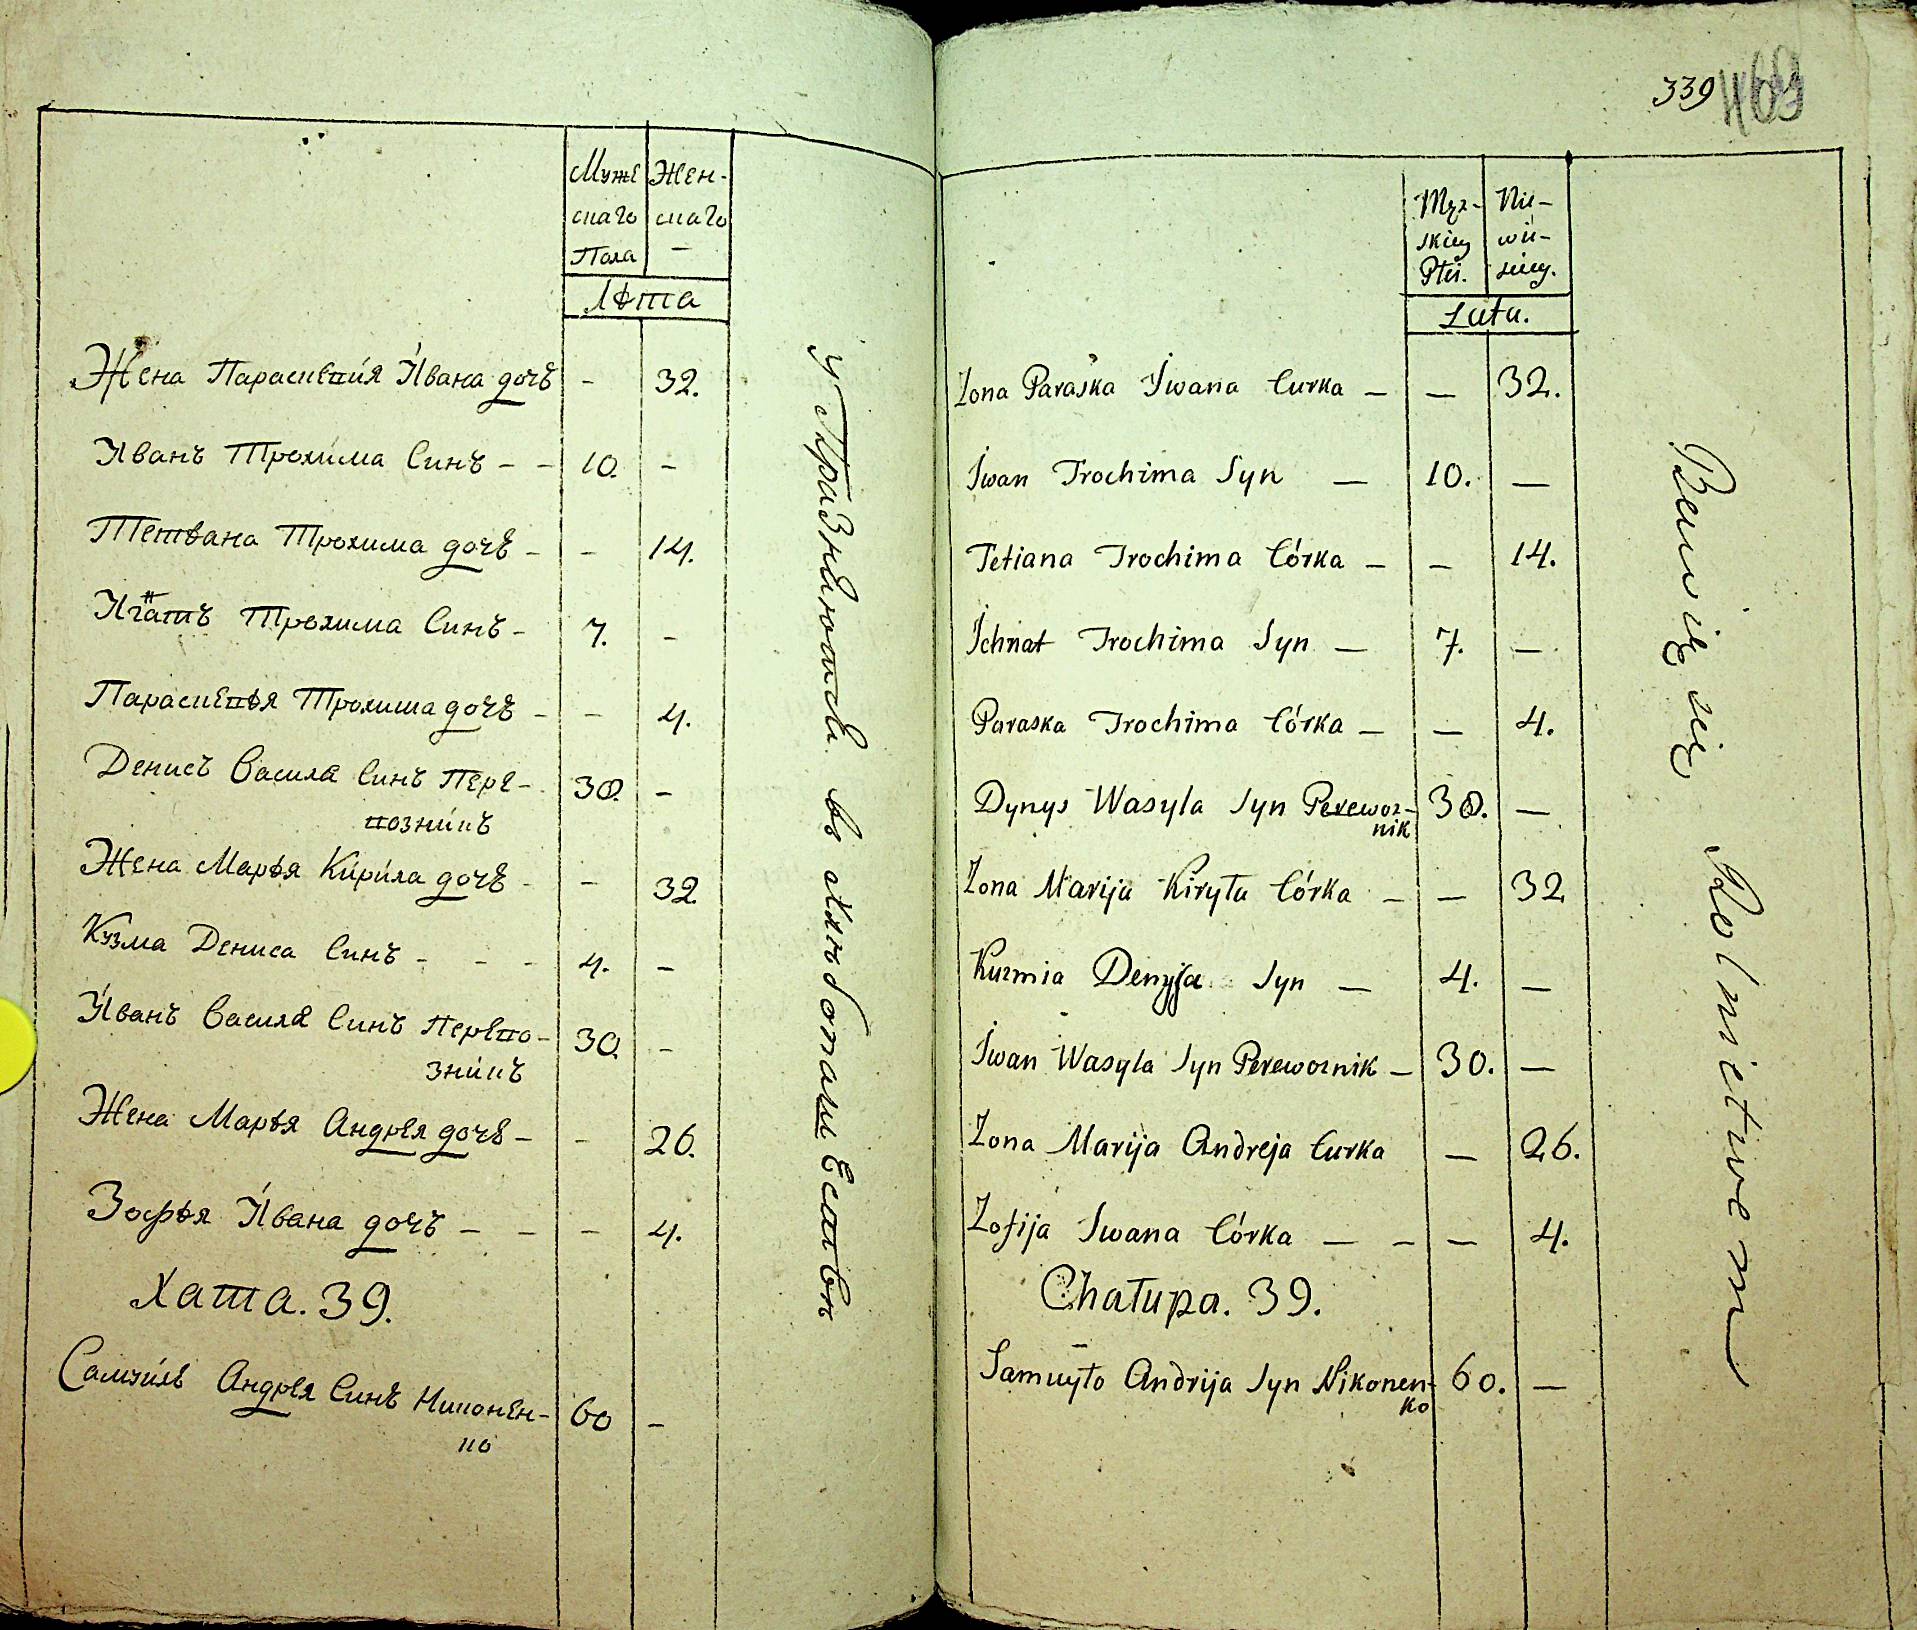 Муже Жен-
скаго скаго
Пола —
Лѣта
Жена Параскевия Ивана дочъ - 32.
Иванъ Трохима Синъ - - 10. -
Тетвана Трохима дочъ - - 14.
Игнатъ Трохима Синъ - 7. -
Параскевѣя Трохима дочъ - - 4.
Денисъ Василя Синъ Пере- 38. -
возникъ
Жена Марѣя Кирила дочъ - - 32.
Кузма Дениса Синъ - - - 4. -
Иванъ Василя Синъ Перево- 30. -
зникъ
Жена Марѣя Андрея дочъ - - 26.
Зофѣя Ивана дочъ - - - 4.
Хата. 39.
Самуилъ Андрея Синъ Никонен- 60 -
ко
упражняются въ хлѣбопашествѣ
339 469
Męz- Nie-
skiey wie-
Płci. sciey.
Lata.
Zona Paraska Iwana Curka — — 32.
Iwan Trochima Syn — 10. —
Tetiana Trochima Córka — — 14.
Ichnat Trochima Syn — 7. —
Paraska Trochima Córka — — 4.
Dynys Wasyla Syn Perewoz- 38. —
nik
Zona Marija Kiryła Córka — — 32
Kuzmia Denysa Syn — 4. —
Iwan Wasyla Syn Perewoznik — 30. —
Zona Marija Andreja Curka — 26.
Zofija Iwana Córka — — — 4.
Chałupa. 39.
Samuyło Andrija Syn Nikonen- 60. —
ko
Bawią się Rolnictwem